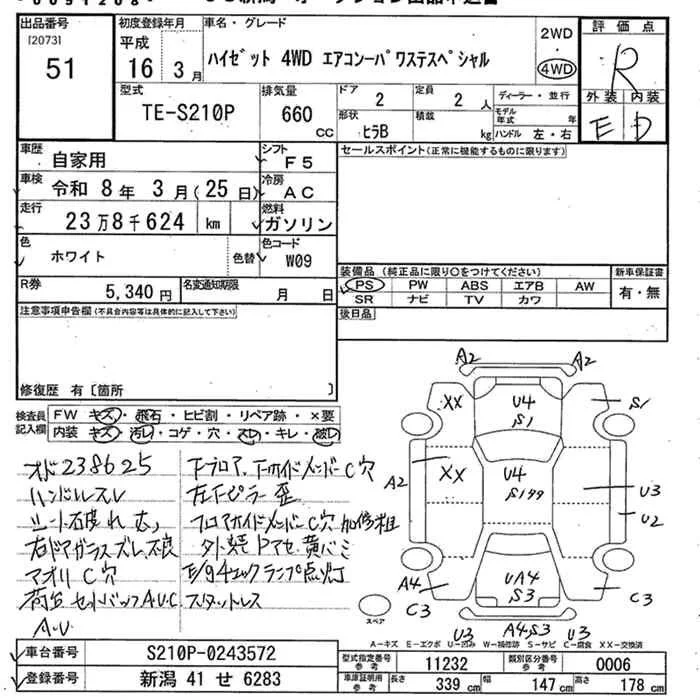 出品番号
[2073]
51
初度登録年月
平成
16 3月
車名・グレード
ハイゼット 4WD エアコンーパワステスペシャル
2WD
4WD
評価点
R
外装 内装
E D
型式
TE-S210P
排気量
660 cc
ドア
2
定員
2 人
形状
ヒラB
積載
kg
ディーラー・並行
モデル年式 年
ハンドル 左・右
車歴
自家用
シフト
F5
車検
令和 8年 3月(25日)
冷房
AC
走行
23万8千624 km
燃料
ガソリン
色
ホワイト
色替
色コード
W09
R券
5,340 円
名変通知期限
月 日
セールスポイント(正常に機能するものに限ります)
装備品 (純正品に限り○をつけてください)
新車保証書
PS PW ABS エアB AW
SR ナビ TV カワ
有・無
後日品
注意事項申告欄(不具合内容等は具体的に記入して下さい)
修復歴 有〔箇所 〕
検査員記入欄
FW キズ・飛石・ヒビ割・リペア跡・×要
内装 キズ・汚れ・コゲ・穴・スレ・キレ・破レ
オド238625
ハンドルスレ
シート破れ
右ドアガラスズレ不良
アオリC穴
荷台セットバックA.U.C
A.U
下フロア、下サイドメンバーC穴
左下ピラー歪
フロアサイドメンバーC穴加修粗
外装Pアセ黄バミ
E/g4チェックランプ点灯
スタットレス
A2
A2
XX
U4
S1
S1
A2
XX
U4
S199
U3
U2
A4
C3
UA4
S3
C3
U3
A4,S3
U3
スペア
A−キズ E−エクボ U−凹み W−補修跡 S−サビ C−腐食 XX−交換済
車台番号
S210P-0243572
登録番号
新潟 41 せ 6283
型式指定番号
参考
11232
類別区分番号
参考
0006
車庫証明用
参考
長さ 339 cm
幅 147 cm
高さ 178 cm